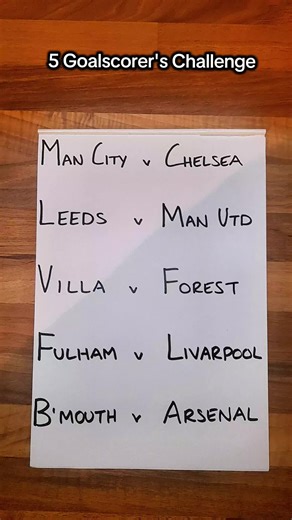 5 Goalscorer's Challenge
MAN CITY v CHELSEA
LEEDS v MAN UTD
VILLA v FOREST
FULHAM v LIVARPOOL
B'MOUTH v ARSENAL